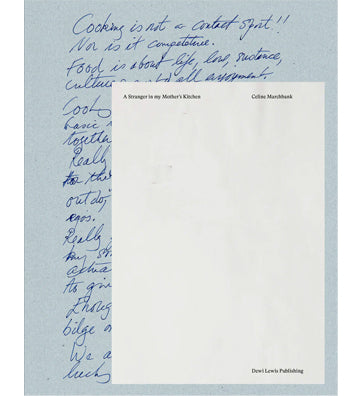 Cooking is not a contact sport!!
Nor is it competitive.
Food is about life, love, sustance,
culture
Cook
basic
together
Really
for the
outdo,
egos.
Really
my
actua
to giv
Enoug
bilge o
We a
lucky
A Stranger in my Mother's Kitchen
Celine Marchbank
Dewi Lewis Publishing